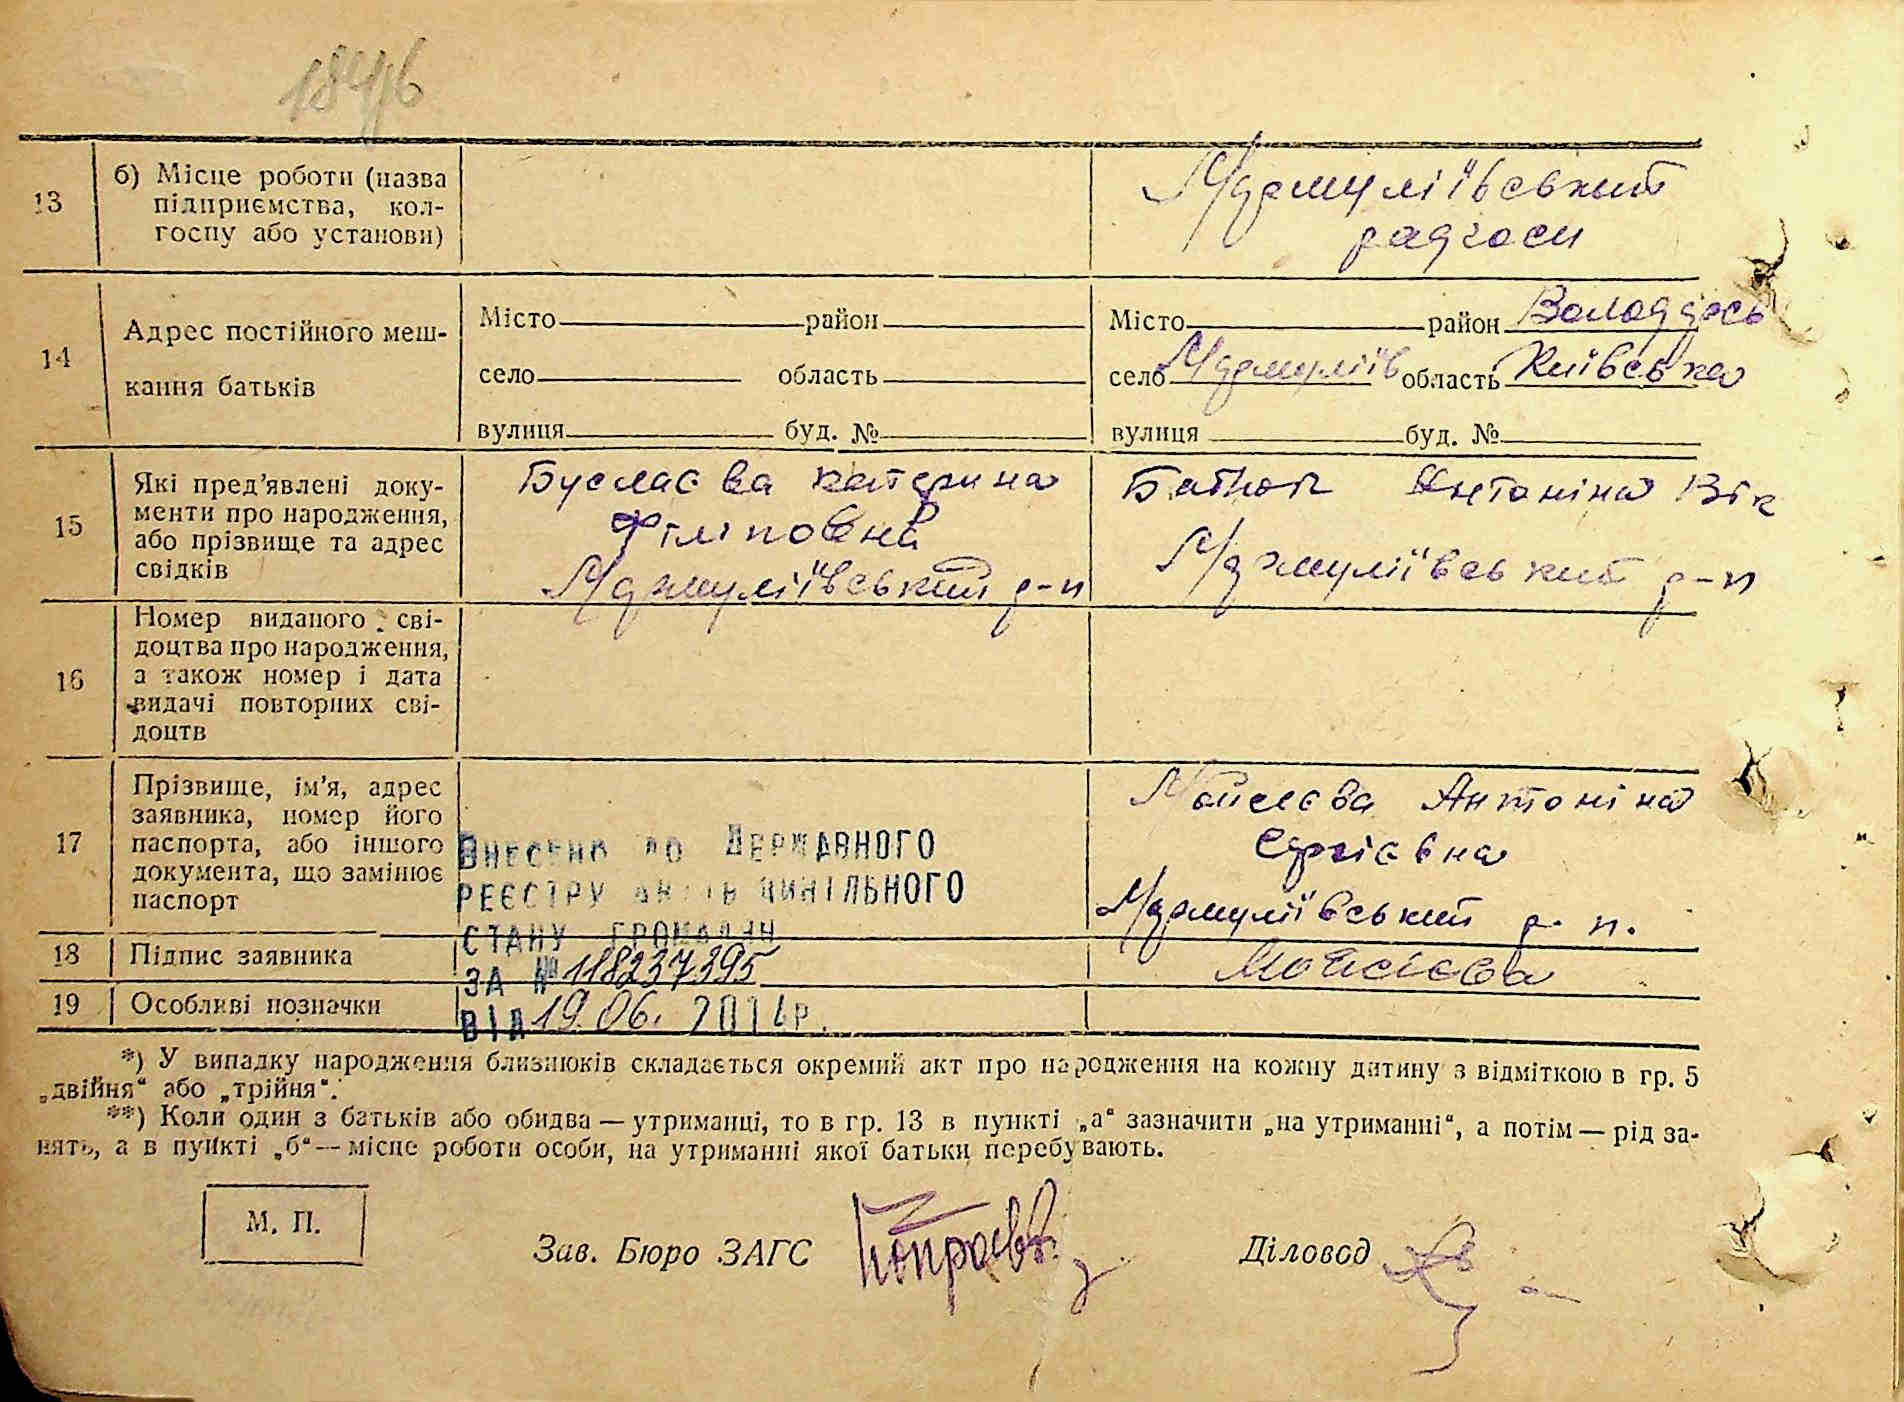 13
б) Місце роботи (назва
підприємства, кол-
госпу або установи)
радгосп
14
Адрес постійного меш-
кання батьків
Місто район
село область
вулиця буд. №
Місто район
село область Київська
вулиця буд. №
15
Які пред’явлені доку-
менти про народження,
або прізвище та адрес
свідків
Буслаєва Катерина
Філіповна
р-п
Антоніна Вік
р-п
16
Номер виданого сві-
доцтва про народження,
а також номер і дата
видачі повторних сві-
доцтв
17
Прізвище, ім’я, адрес
заявника, номер його
паспорта, або іншого
документа, що замінює
паспорт
Мойсєєва Антоніна
Сергієвна
р. п.
ВНЕСЕНО ДО ДЕРЖАВНОГО
РЕЄСТРУ АКТІВ ЦИВІЛЬНОГО
СТАНУ ГРОМАДЯН
ЗА № 118237395
ВІД 19.06. 2014р.
18
Підпис заявника
Мойсієва
19
Особливі позначки
*) У випадку народження близнюків складається окремий акт про народження на кожну дитину з відміткою в гр. 5
„двійня“ або „трійня“.
**) Коли один з батьків або обидва — утриманці, то в гр. 13 в пункті „а“ зазначити „на утриманні“, а потім — рід за-
нять, а в пункті „б“ — місце роботи особи, на утриманні якої батьки перебувають.
М. П.
Зав. Бюро ЗАГС
Діловод